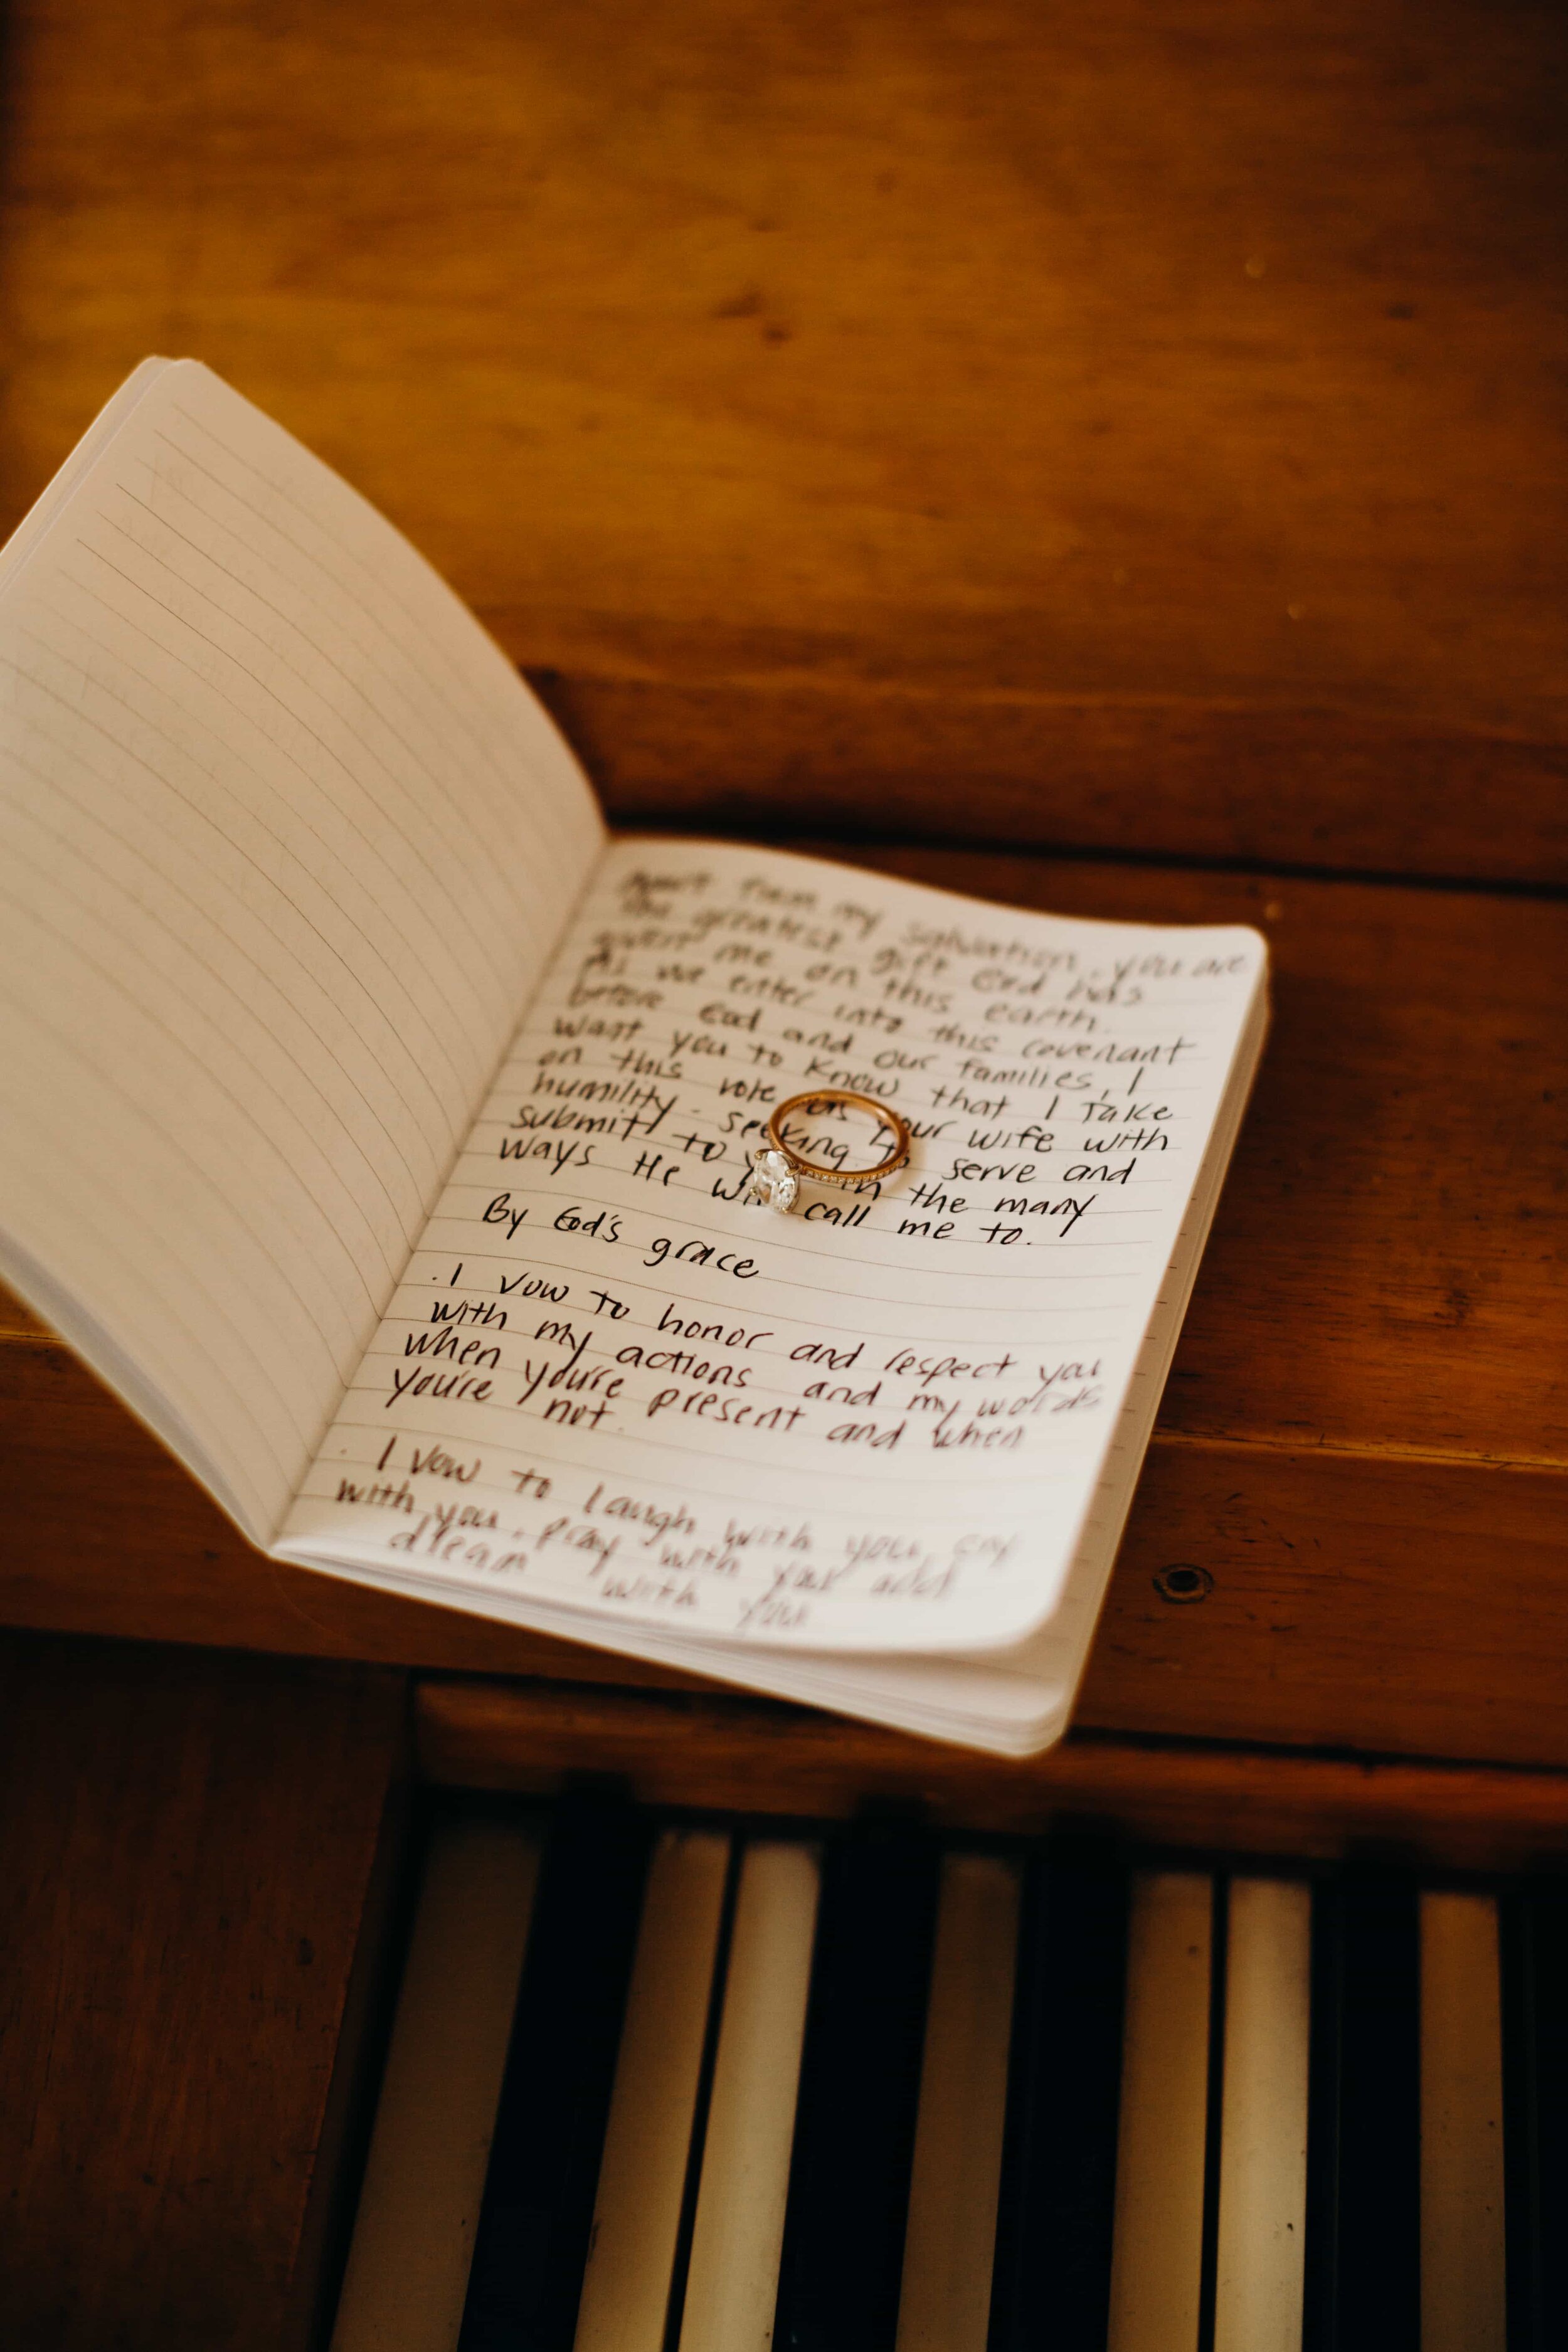 Apart from my salvation, you are
the greatest gift God has
given me on this earth.
As we enter into this covenant
before God and our families, I
want you to know that I take
on this role as your wife with
humility - seeking to serve and
submit to in the many
ways He will call me to.
By God's grace
. I vow to honor and respect you
with my actions and my words
when you're present and when
you're not.
. I vow to laugh with you, cry
with you, pray with you and
dream with you